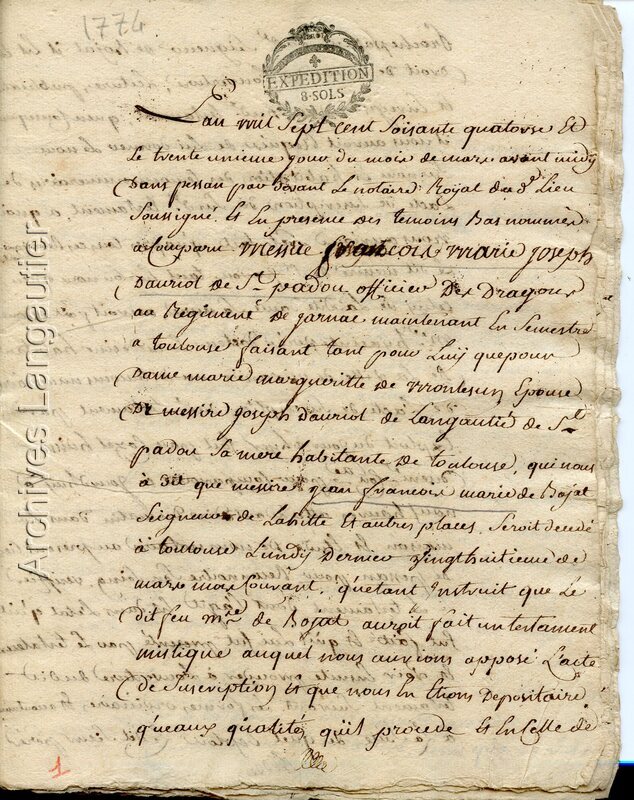 1774
EXPEDITION
8·SOLS
L'an mil Sept cent Soisante quatorse Et
Le trente unieme jour du mois de mars avant midy
Dans pessan par devant Le notaire Royal du d. Lieu
Soussigné Et En presence des temoins Bas nommés
a Comparu messire françois marie joseph
Dauriol de St padou officier Des Dragons
au Regiment de jarnac maintenant En Semestre
à toulouse faisant tant pour Luy que pour
Dame marie margueritte de montesun Epouse
De messire joseph Dauriol de Langautié de St
padou Sa mere habitante de toulouse, qui nous
à Dit que messire jean francois marie de Bojat
Seigneur de Lahitte Et autres places, Seroit decedé
à toulouse Lundy Dernier vingthuitieme de
mars mois Courant, qu'etant Instruit que Le
dit feu mre de Bojat auroit fait un testament
mistique auquel nous aurions apposé L'acte
de Suscription Et que nous En Etions Depositaire
qu'eaux qualités qu'il procede Et En Celle de
1
Archives Langautier